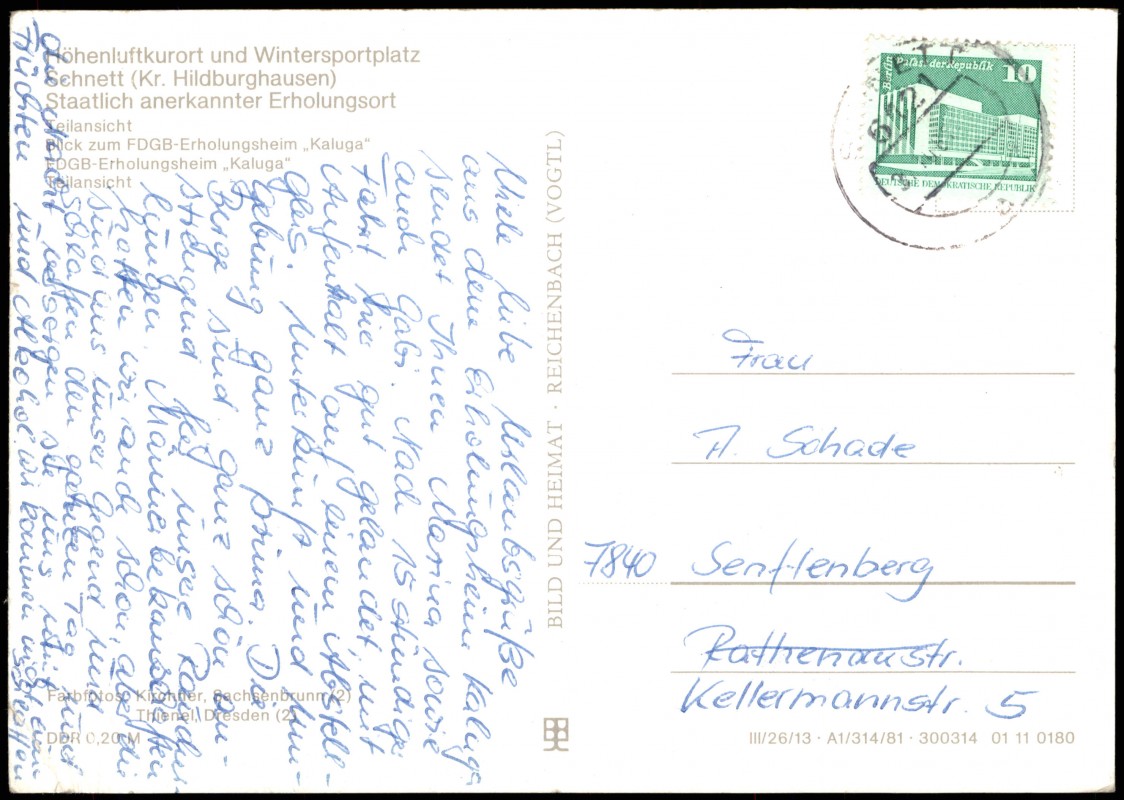 Höhenluftkurort und Wintersportplatz
Schnett (Kr. Hildburghausen)
Staatlich anerkannter Erholungsort
Teilansicht
Blick zum FDGB-Erholungsheim „Kaluga“
FDGB-Erholungsheim „Kaluga“
Teilansicht
Viele liebe Urlaubsgrüße
aus dem Erholungsheim Kaluga
sendet Ihnen Marina sowie
auch Gabi. Nach 15 stündiger
Fahrt hier gut gelandet, mit
Aufenthalt auf einem Abstell-
gleis. Unterkunft und Um-
gebung ganz prima. Die
Berge sind ganz schön an-
strengend für unsere Raucher
lungen. Männerbekanntschaften
hatten wir auch schon, aber die
sind uns unser Gegend und
schlafen den ganzen Tag und
versorgen sie uns mit
Früchten und Alkohol. Wir können nicht
BILD UND HEIMAT · REICHENBACH (VOGTL)
Farbfotos: Kirchner, Sachsenbrunn (2)
Thienel, Dresden (2)
DDR 0,20 M
Berlin Palast der Republik 10
DEUTSCHE DEMOKRATISCHE REPUBLIK
Frau
A. Schade
7840 Senftenberg
Rathenaustr.
Kellermannstr. 5
III/26/13 · A1/314/81 · 300314 01 11 0180